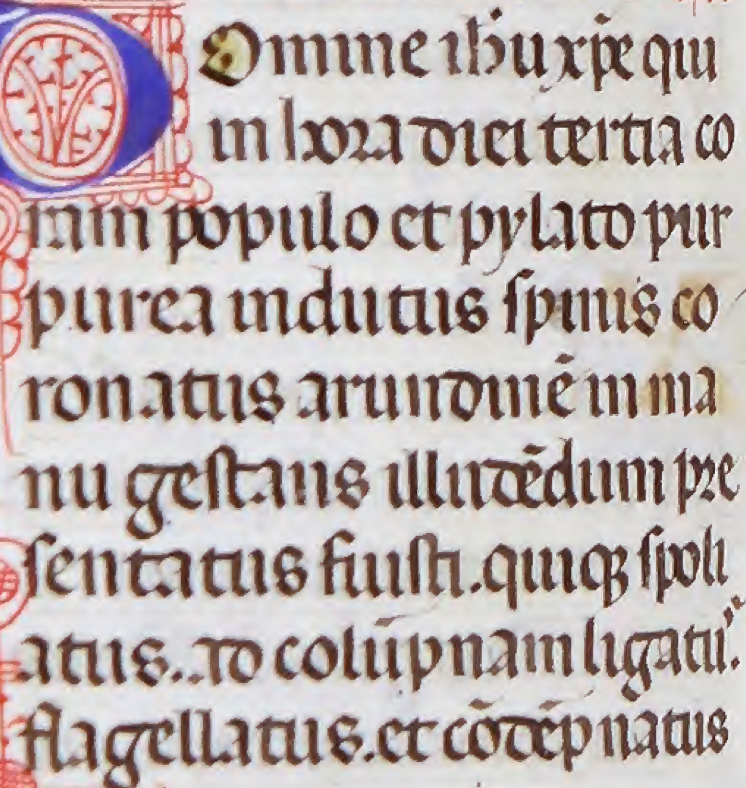 Domine ihu xp̄e qui
in hora diei tertia co
ram populo et pylato pur
purea indutus spinis co
ronatus arundinē in ma
nu gestans illudēdum pre
sentatus fuisti. quiqꝫ spoli
atus. ad colūpnam ligatuˀ.
flagellatus. et cōdēpnatus